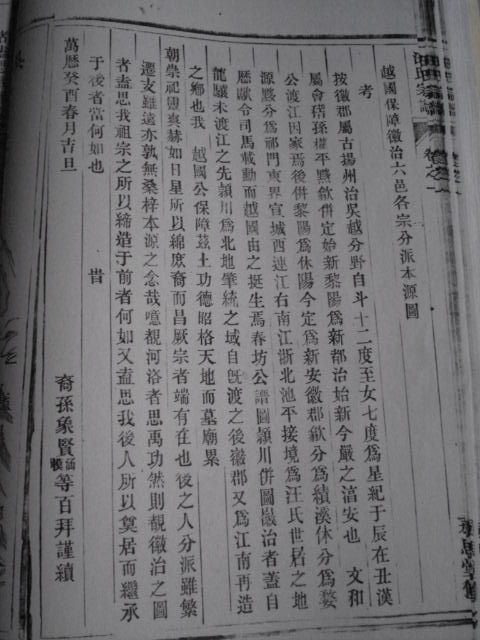 汪氏家譜 卷之一
越國保障徽治六邑各宗分派本源圖
考
按徽郡屬古揚州治吳越分野自斗十二度至女七度爲星紀于辰在丑漢
屬會稽孫權平黟歙併定始新黎陽爲新都治始新今嚴之淳安也 文和
公渡江因家焉後併黎陽爲休陽今定爲新安徽郡歙分爲績溪休分爲婺
源黟分爲祁門東界宣城西連江右南江浙北池平接境爲汪氏世居之地
歷歙令司馬載勳而越國由之挺生焉春坊公譜圖潁川併圖徽治者蓋自
龍驤未渡江之先潁川爲北地肇統之域自旣渡之後徽郡又爲江南再造
之鄉也我 越國公保障茲土功德昭格天地而墓廟累
朝崇祀靈爽赫如日星所以綿庶裔而昌厥宗者端有在也後之人分派雖繁
遷友雖遠亦孰無桑梓本源之念哉噫觀河洛者思禹功然則觀徽治之圖
者盍思我祖宗之所以締造于前者何如又盍思我後人所以奠居而繼承
于後者當何如也 旹
萬曆癸酉春月吉旦
裔孫象賢 等百拜謹續